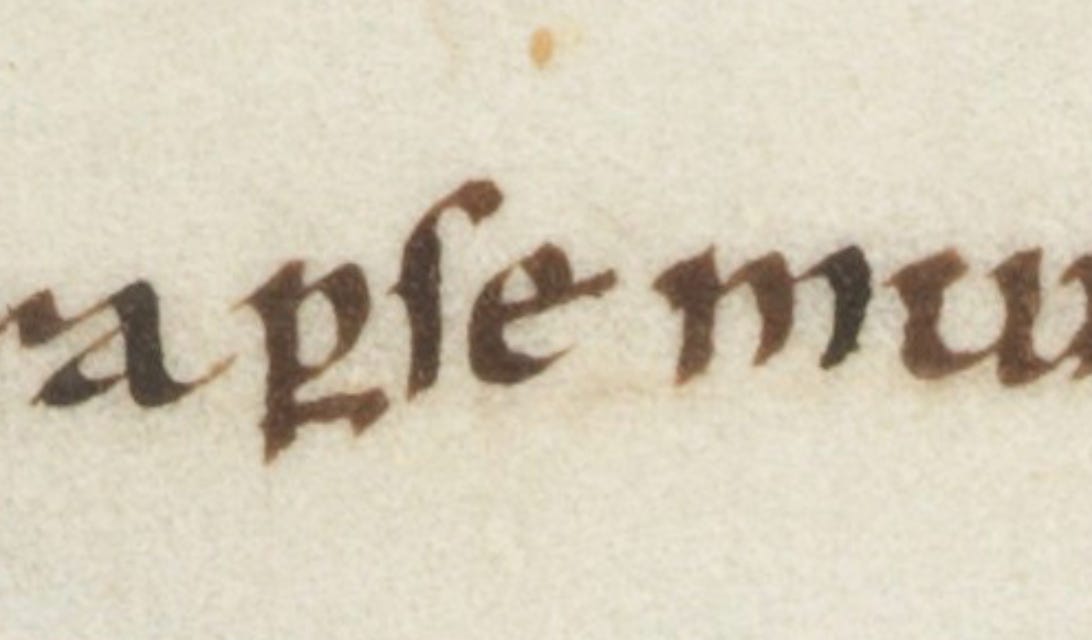 ra ꝑſe mu